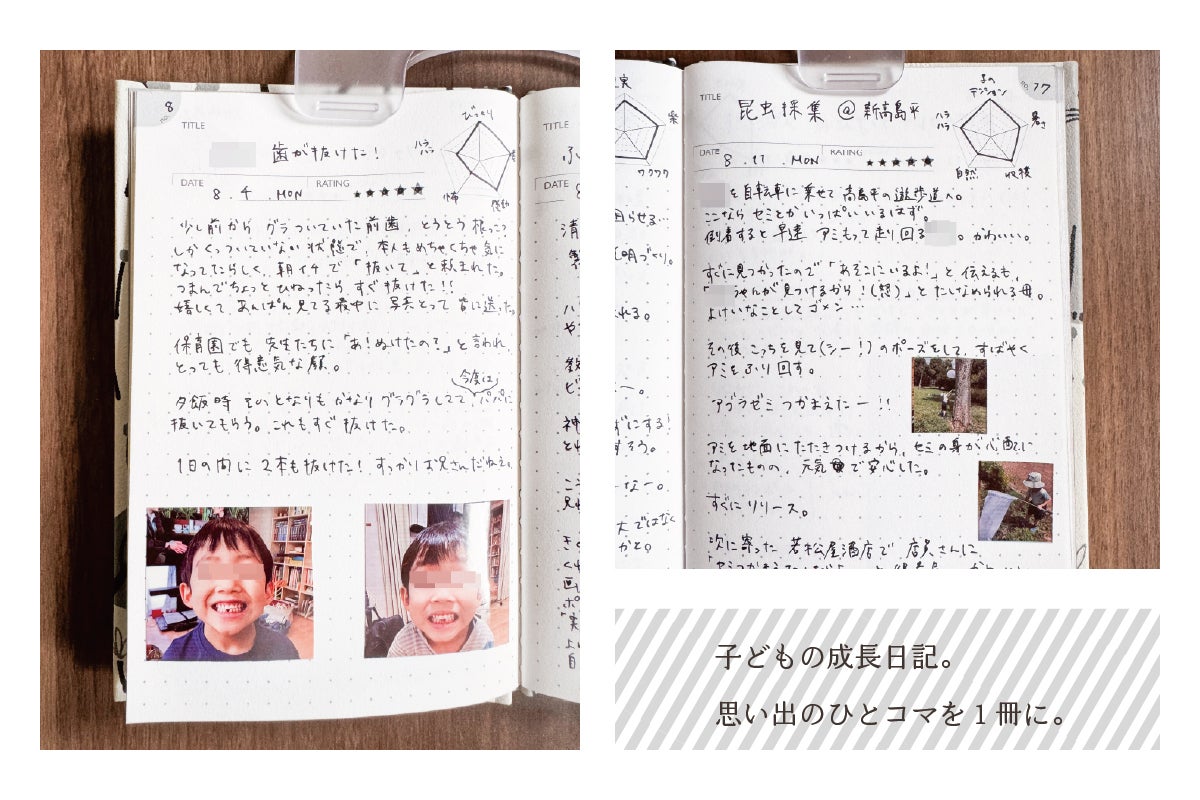 8
TITLE
びっくり
歯が抜けた!
ハラハラ
怖
感動
DATE 8.4.MON RATING ★★★★★
少し前から グラついていた前歯、とうとう根っこ
しかくっついていない状態で、本人もめちゃくちゃ気に
なってたらしく、朝イチで「抜いて」と頼まれた。
つまんでちょっとひねったら、すぐ抜けた!!
嬉しくて、あんぱん見てる最中に 写真とって 皆に送った。
保育園でも 先生たちに「あ!ぬけたの?」と言われ、
とっても 得意気な顔。
今度は
夕飯時 そのとなりも かなり グラグラしてて、パパに
抜いてもらう。これもすぐ抜けた。
1日の内に 2本も抜けた! すっかりお兄さんだねえ。
TITLE
DATE 8
77
TITLE
昆虫採集 @ 新高島平
子の
テンション
暑さ
収穫
自然
ハラハラ
ワクワク
DATE 8.11.MON RATING ★★★★★
を自転車に乗せて 高島平の遊歩道へ。
ここなら セミとか いっぱい いるはず。
到着すると 早速 アミもって走り回る 。かわいい。
すぐに見つかったので「あそこにいるよ!」と 伝えるも、
「 ちゃんが見つけるから!(怒)」と たしなめられる母。
よけいなことして ゴメン…
その後、こっちを見て(シー!)のポーズをして、すばやく
アミをふり回す。
アブラゼミ つかまえたー!!
アミを地面にたたきつけるから、セミの身が心配に
なったものの、元気で安心した。
すぐにリリース。
次に寄った 若松屋酒店で 店員さんに、
子どもの成長日記。
思い出のひとコマを1冊に。